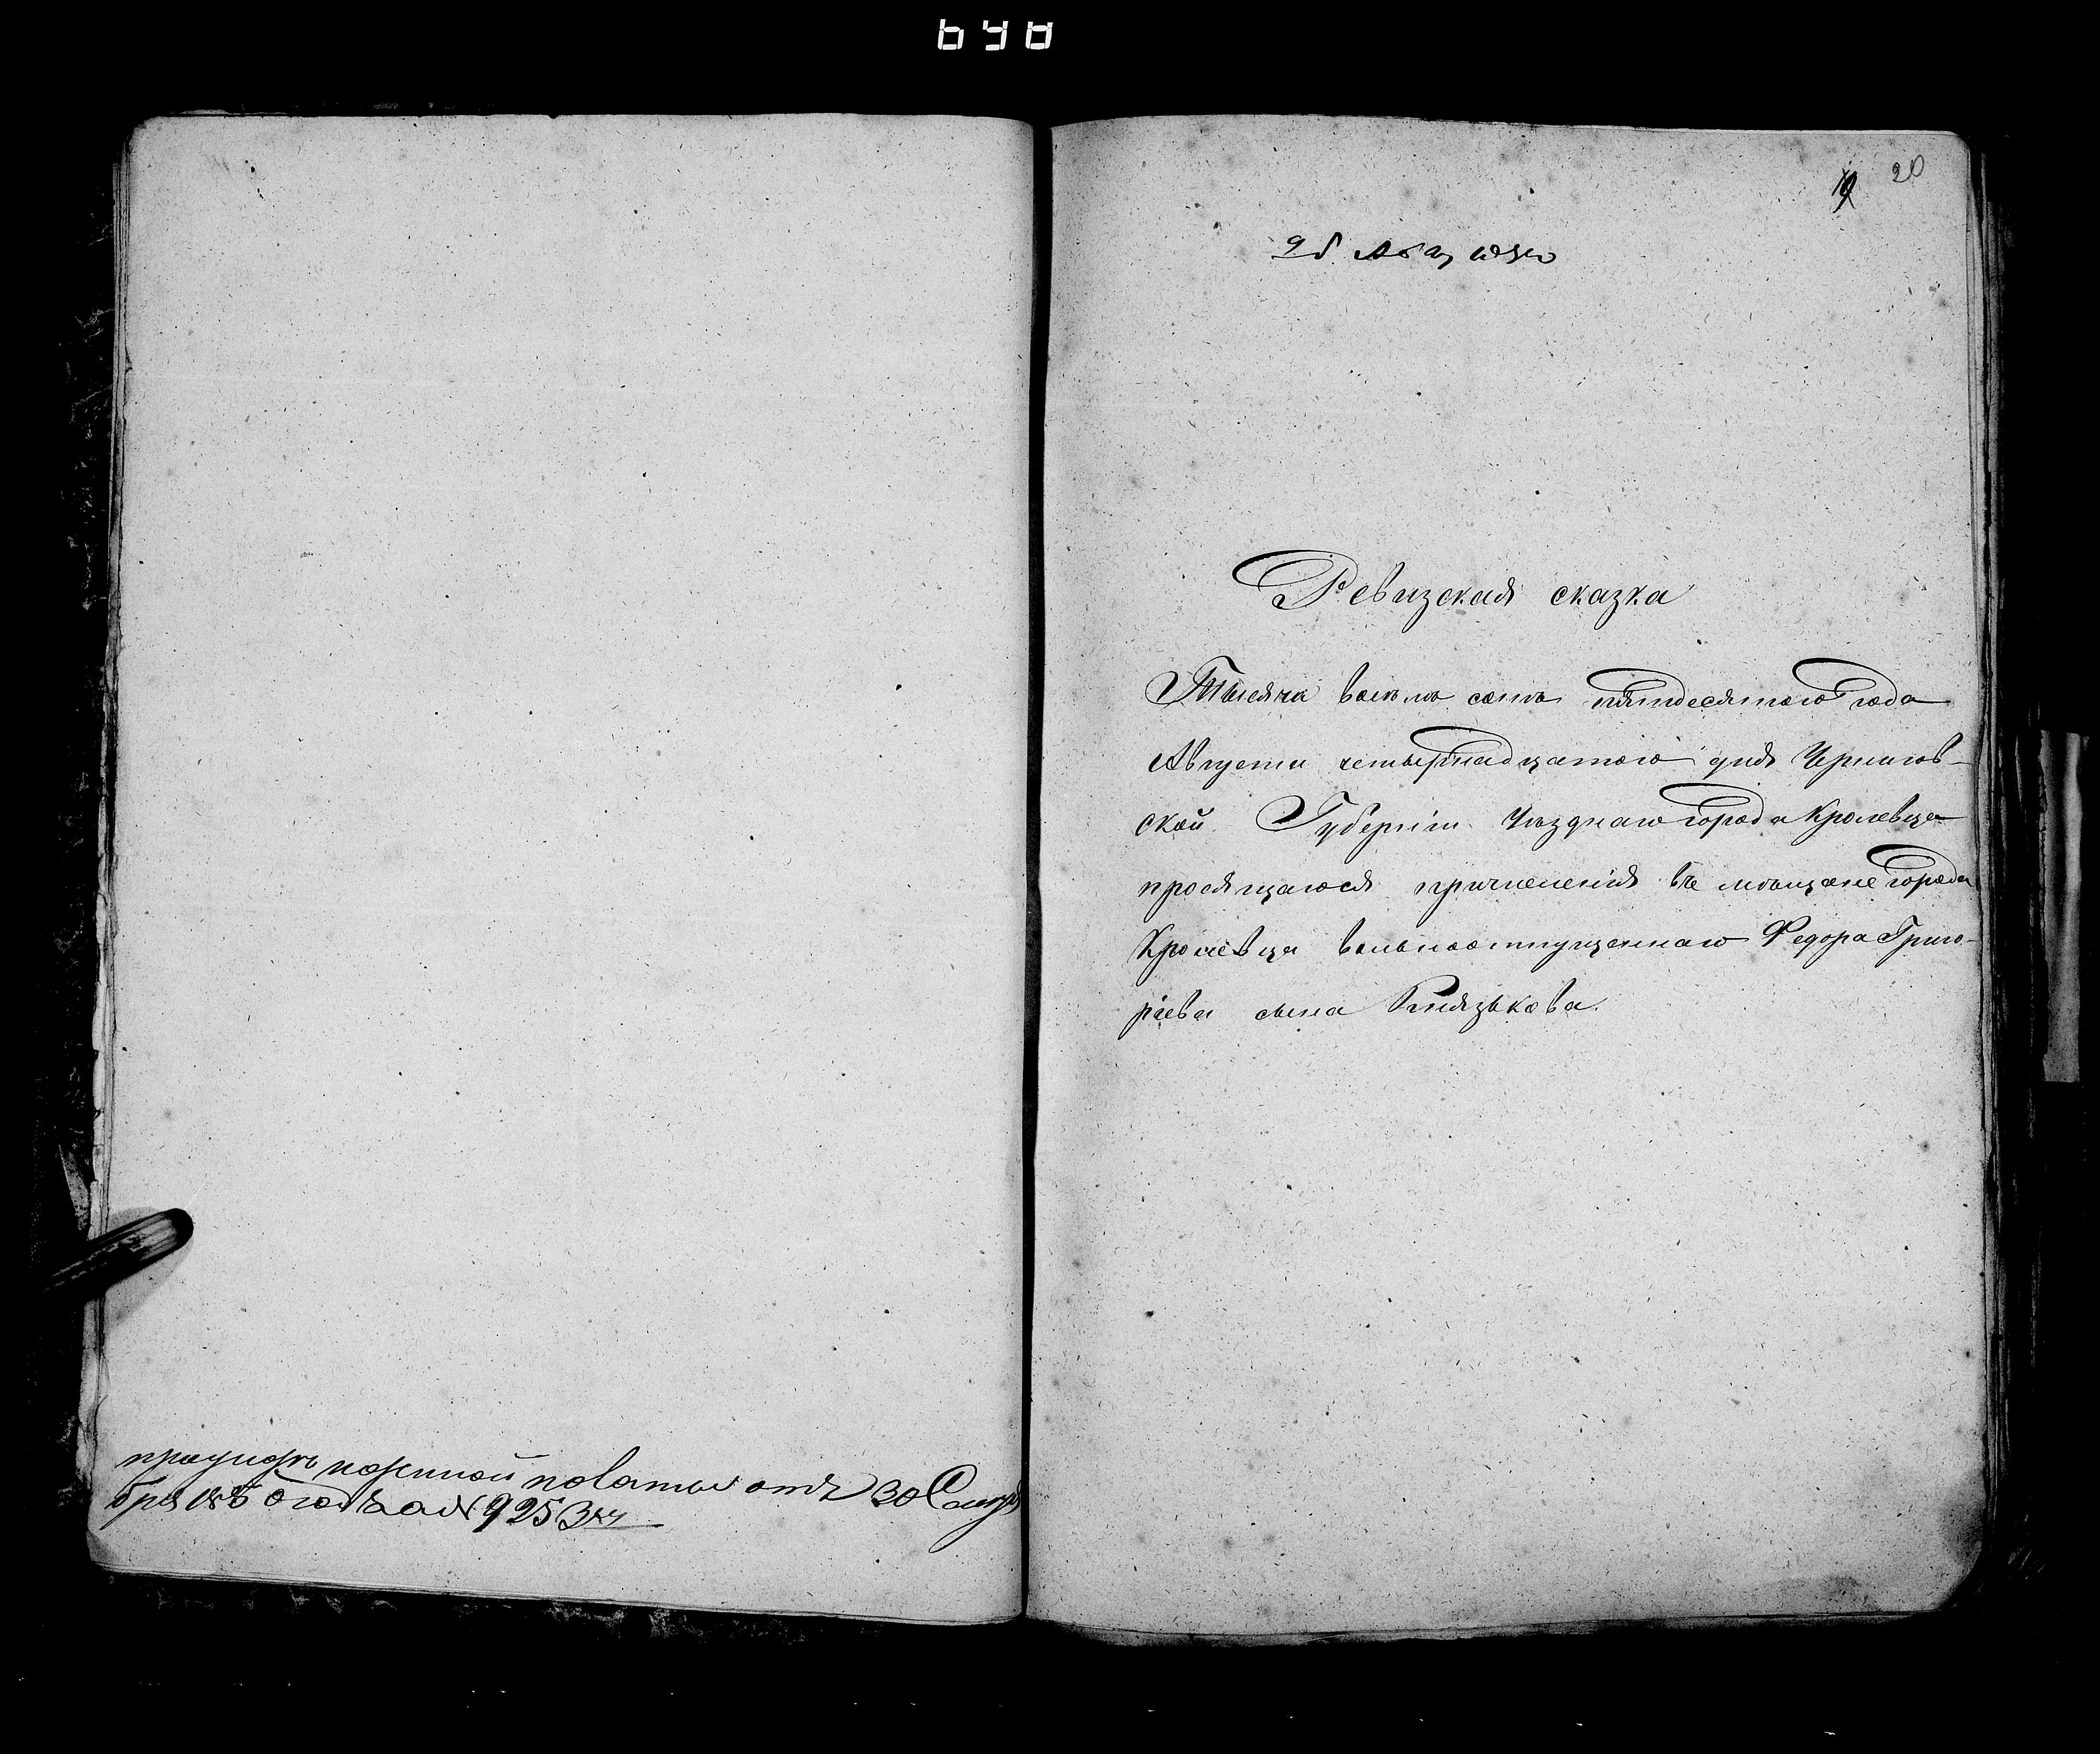 20
Ревизская сказка
Тысяча восемь сотъ пятдесятого года
Августа четырнадцатого дня Чернигов-
ской Губерніи Уѣзднаго города Кролевца
просящагося причисленія въ мѣщане города
Кролевца вольноотпущеннаго Федора Григо-
ріева сына Князькова.
палаты отъ 30
бря 9253